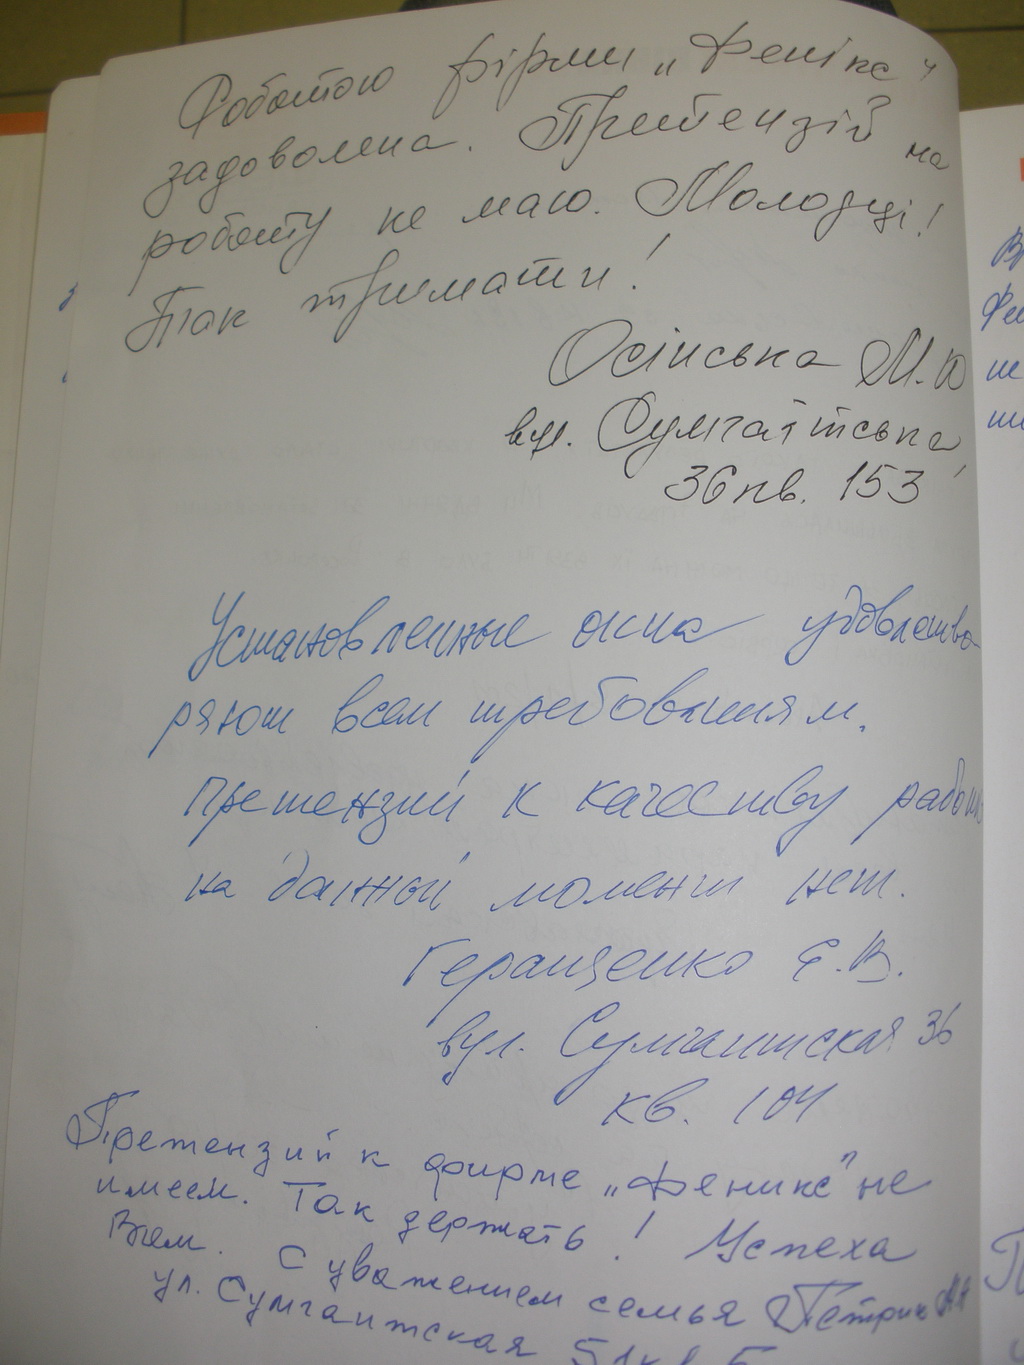 Роботою фірми „Фенікс"
задоволена. Претензій на
роботу не маю. Молодці!
Так тримати!
Осінська М.Ю
вул. Сумгаїтська,
36 кв. 153
Установленные окна удовлетво
ряют всем требованиям.
Претензий к качеству работы
на данный момент нет.
Геращенко Е.В.
вул. Сумгаитская 36
кв. 104
Претензий к фирме „Феникс" не
имеем. Так держать! Успеха
Вам. С уважением семья Петрик
ул. Сумгаитская